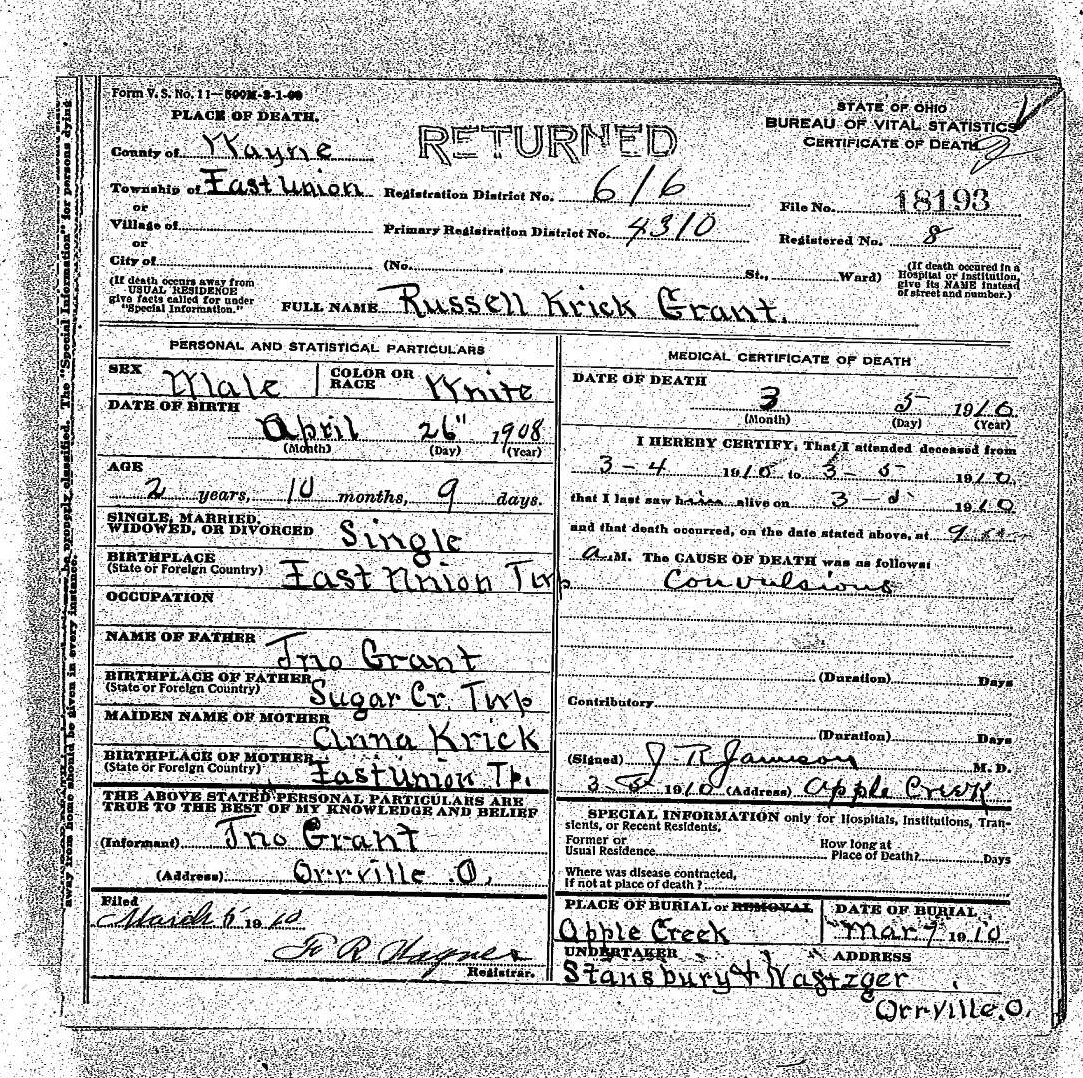 Form V. S. No. 11—500M-3-1-09
PLACE OF DEATH.
STATE OF OHIO
BUREAU OF VITAL STATISTICS
CERTIFICATE OF DEATH
RETURNED
County of Wayne
Township of East Union Registration District No. 616
File No. 18193
or
Village of Primary Registration District No. 4310
Registered No. 8
or
City of (No. , St., Ward)
(If death occured in a Hospital or Institution, give its NAME instead of street and number.)
(If death occurs away from USUAL RESIDENCE give facts called for under "Special Information.")
FULL NAME Russell Krick Grant.
PERSONAL AND STATISTICAL PARTICULARS
SEX Male COLOR OR RACE White
DATE OF BIRTH
April 26" 1908
(Month) (Day) (Year)
AGE
2 years, 10 months, 9 days.
SINGLE, MARRIED, WIDOWED, OR DIVORCED Single
BIRTHPLACE
(State or Foreign Country) East Union Twp
OCCUPATION
NAME OF FATHER Jno Grant
BIRTHPLACE OF FATHER
(State or Foreign Country) Sugar Cr. Twp
MAIDEN NAME OF MOTHER Anna Krick
BIRTHPLACE OF MOTHER
(State or Foreign Country) East Union Tp.
THE ABOVE STATED PERSONAL PARTICULARS ARE
TRUE TO THE BEST OF MY KNOWLEDGE AND BELIEF
(Informant) Jno Grant
(Address) Orrville O.
Filed
March 5 1910
Registrar.
MEDICAL CERTIFICATE OF DEATH
DATE OF DEATH
3 5 1910
(Month) (Day) (Year)
I HEREBY CERTIFY, That I attended deceased from
3-4 1910 to 3-5 1910
that I last saw h alive on 3-5 1910
and that death occurred, on the date stated above, at 9
a. M. The CAUSE OF DEATH was as follows:
Convulsions
(Duration) Days
Contributory
(Duration) Days
(Signed) J. R. Jameson M. D.
3-5 1910 (Address) Apple Creek
SPECIAL INFORMATION only for Hospitals, Institutions, Tran-
sients, or Recent Residents.
Former or Usual Residence How long at Place of Death? Days
Where was disease contracted,
if not at place of death?
PLACE OF BURIAL or REMOVAL
Apple Creek
DATE OF BURIAL
Mar 7 1910
UNDERTAKER ADDRESS
Stansbury &
Orrville. O.
away from home should be given in every instance. properly classified. The "Special Information" for persons dying